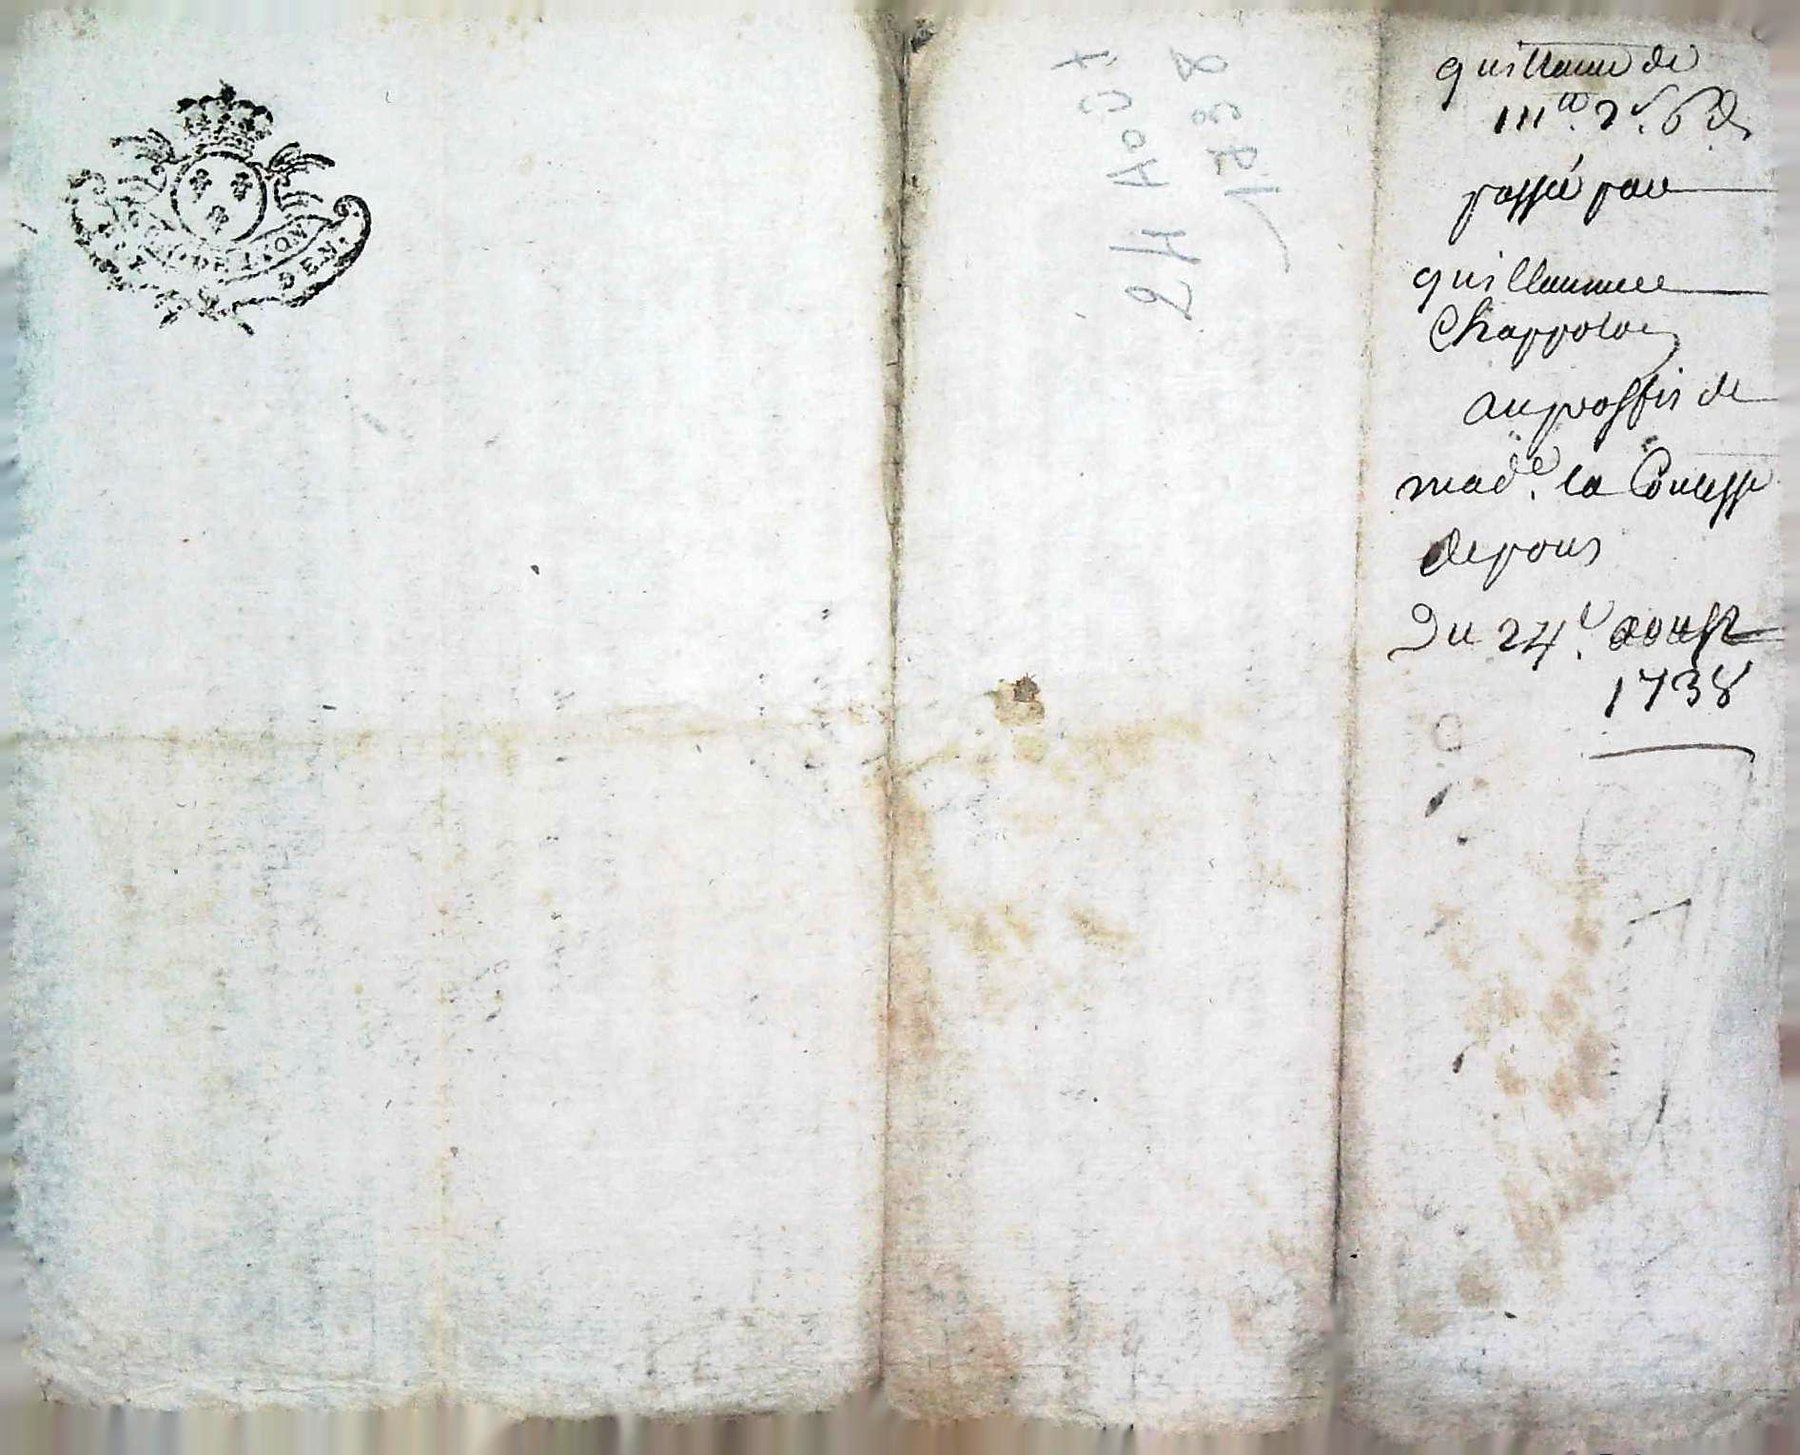 24 Aout
1738
quittance de
111ᵗᵗ. 2ˢ. 6 ds
passé par
guillaumee
Chappolon
au proffis de
madᵉ. la Contesse
de pons
Du 24ᵉ. aoust
1738